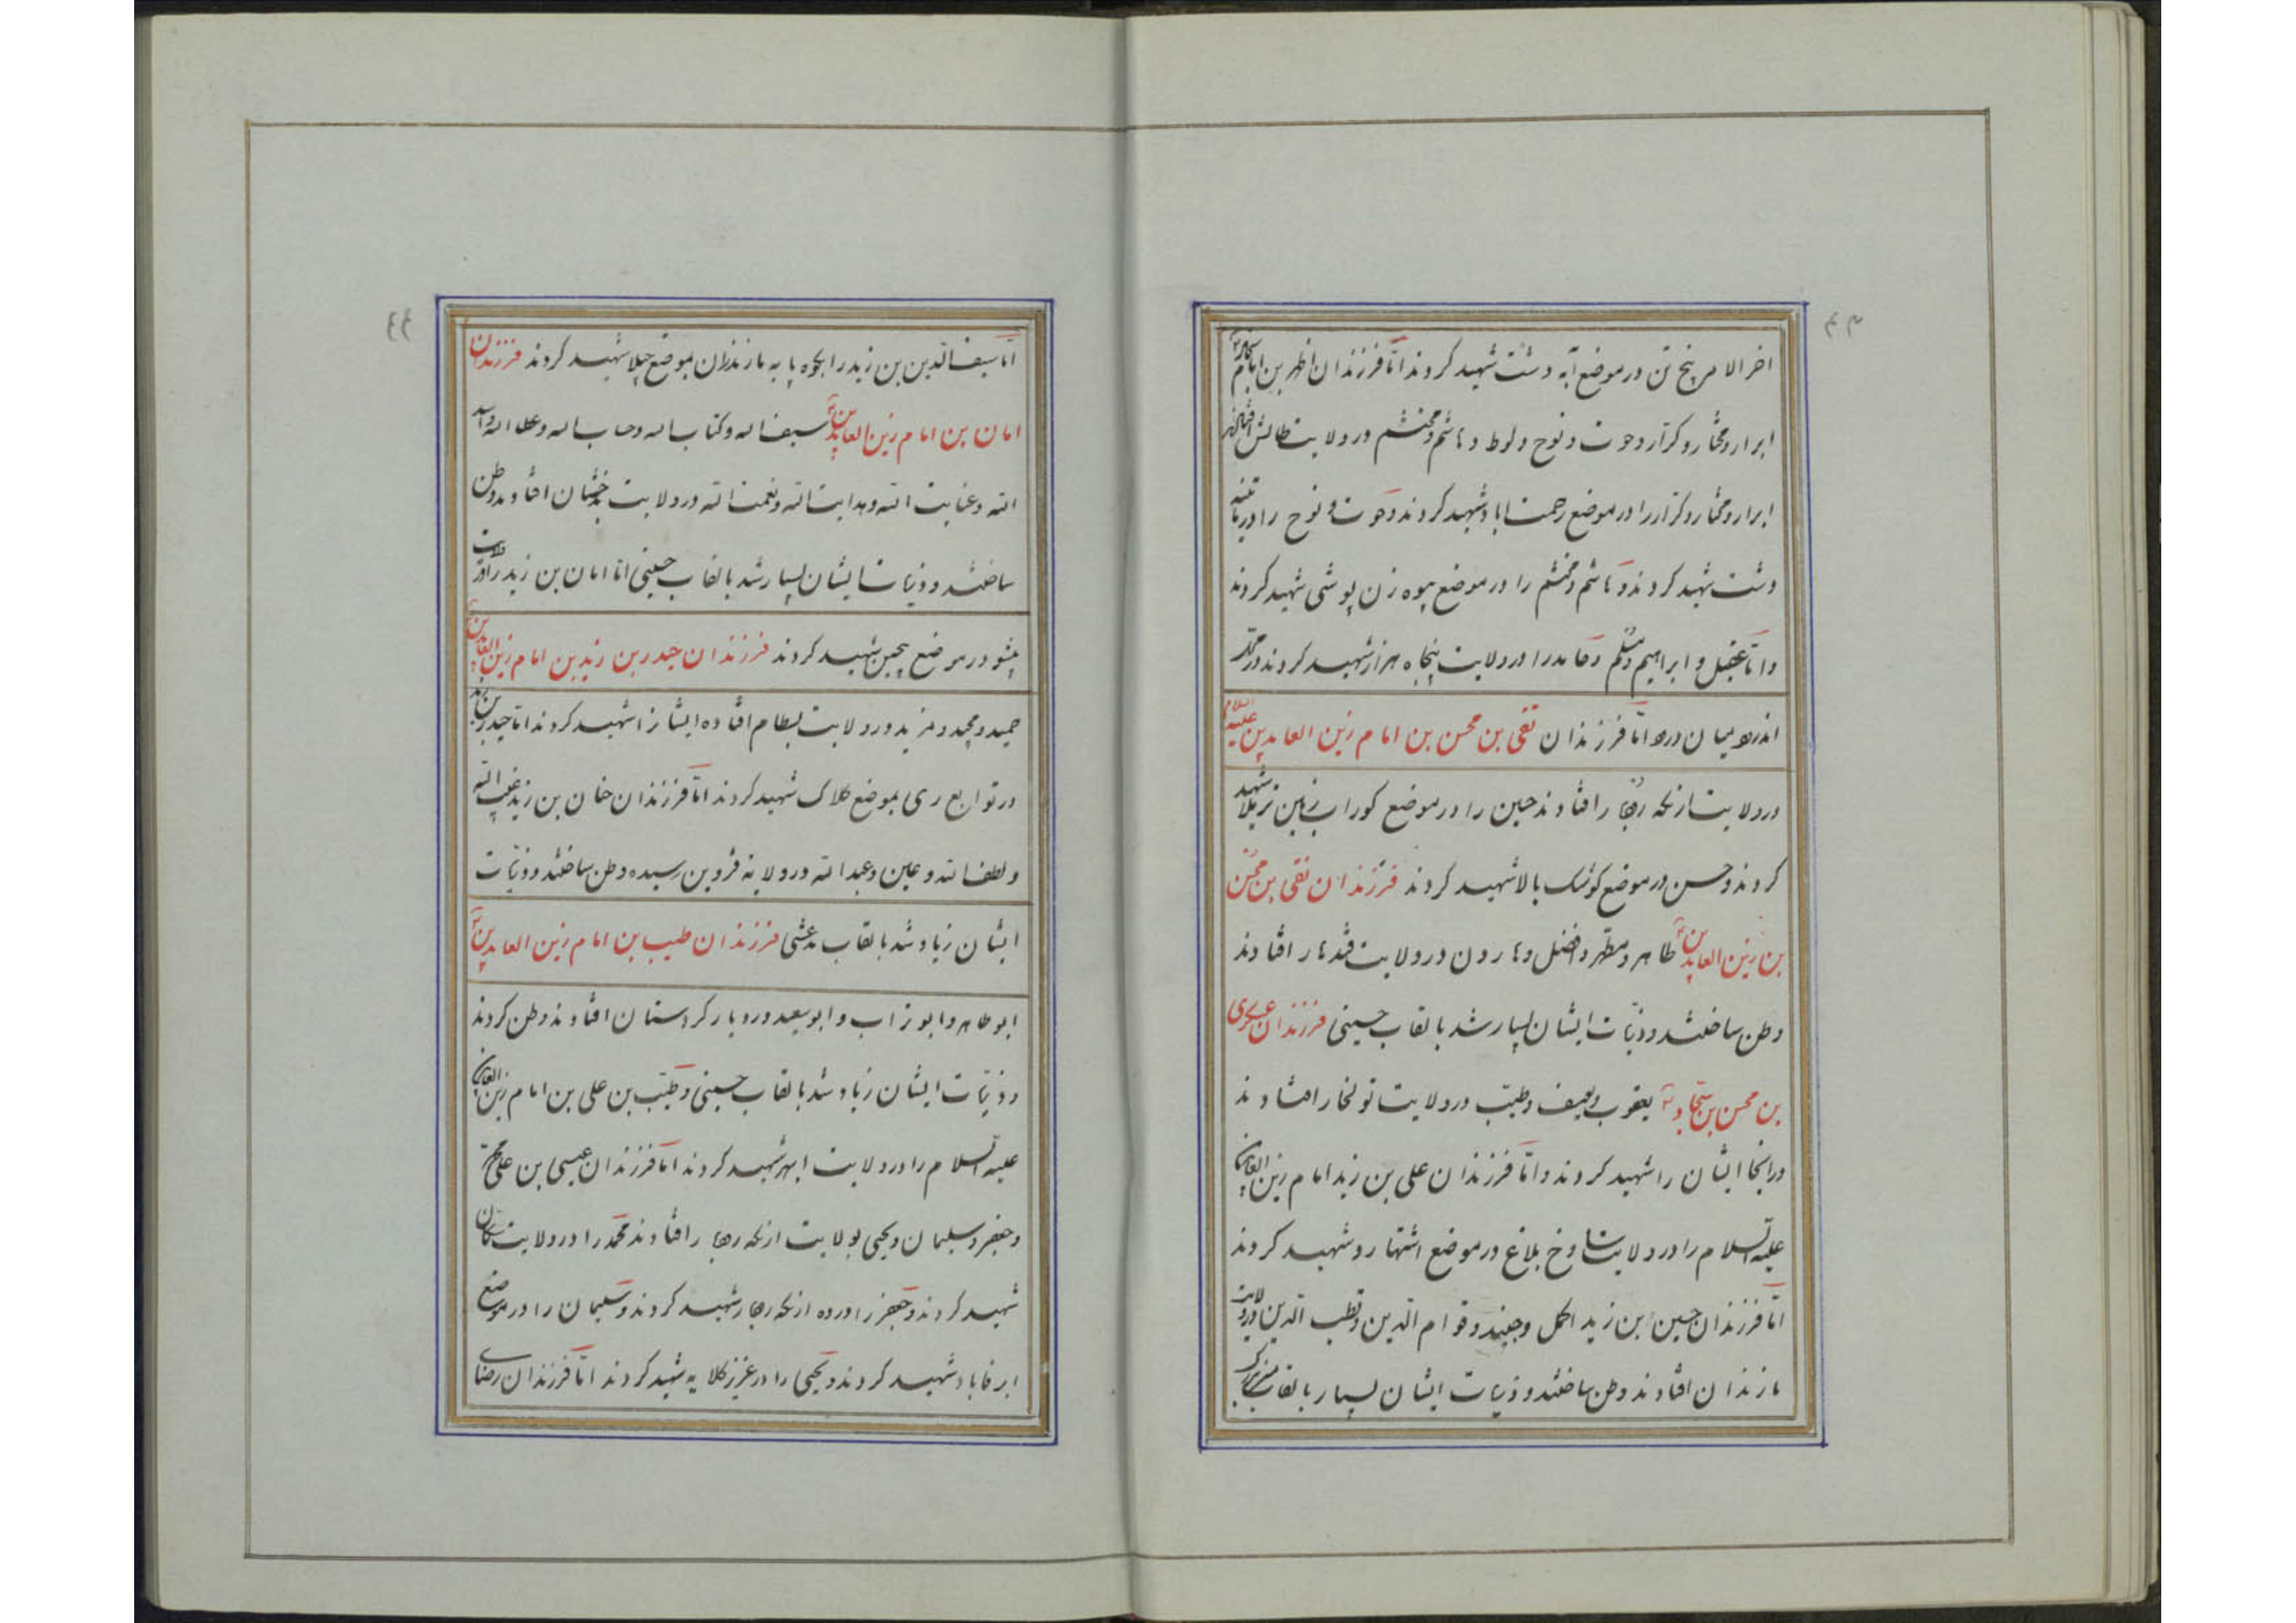 اخر الامر پنج تن در موضع آبه دشت شهید کردند امّا فرزندان اظهر بن امام
ابرار و مختار و کرّار و حوت و نوح و لوط و هاشم و محتشم در ولایت طالش
ابرار و مختار و کرّار را در موضع رحمت اباد شهید کردند و حوت و نوح را در
دشت شهید کردند و هاشم و محتشم را در موضع بیوه زن پوشی شهید کردند
و امّا عقیل و ابراهیم و مسلم و حامد را در ولایت پنجاه هزار شهید کردند و محمد
امّا فرزندان تقی بن محسن بن امام زین العابدین علیه السلام
در ولایت از نکه رجار افتادند حسین را در موضع کوراب زمین شهید
کردند و حسن در موضع کوشک بالا شهید کردند فرزندان نقی بن محسن
بن زین العابدین طاهر و مطهّر و افضل و هارون در ولایت قندهار افتادند
وطن ساختند و ذریّات ایشان بسیار شد بالقاب حسینی فرزندان عسکری
بن محسن بن سجّاد یعقوب و یوسف و طیّب در ولایت تولخار افتادند
در آنجا ایشان را شهید کردند و امّا فرزندان علی بن زید امام زین العابدین
علیه السلام را در ولایت شاوخ بلاغ در موضع اشتهارد شهید کردند
امّا فرزندان حسین بن زید اکمل و جنید و قوام الدین و قطب الدین در ولایت
مازندران افتادند وطن ساختند و ذریات ایشان بسیار بالقاب
امّا سیف الدین بن زید را بکوه پایه مازندران بموضع چلا شهید کردند فرزندان
امان بن امام زین العابدین سیف اله و کتاب اله و حباب اله و عطا اله و
اللّه و عنایت اللّه و هدایت اللّه و نعمت اللّه در ولایت بدخشان افتادند وطن
ساختند و ذریّات ایشان بسیار شد بالقاب حسینی امّا امان بن زید را در ولایت
پشو در موضع پیچین شهید کردند فرزندان حیدر بن زید بن امام زین العابدین
حمید و مجید و مزید در ولایت بسطام افتاده ایشانرا شهید کردند امّا حیدر بن زید
در توابع ری بموضع کلاک شهید کردند امّا فرزندان خان بن زید غیب اللّه
و لطف اللّه و عین و عبد اللّه در ولایه قزوین رسیده وطن ساختند و ذریّات
ایشان زیاد شد بالقاب مدعشی فرزندان طیب بن امام زین العابدین
ابو طاهر و ابو تراب و ابو سعید در دیار کردستان افتادند وطن کردند
و ذریّات ایشان زیاد شد بالقاب حسینی و طیّب بن علی بن امام زین العابدین
علیه السلام را در ولایت ابهر شهید کردند امّا فرزندان عیسی بن علی محمّد
و جعفر و سلیمان و یحیی بولایت از نکه رجار افتادند محمّد را در ولایت
شهید کردند و جعفر را در ده از نکه رجار شهید کردند و سلیمان را در موضع
ابرفاباد شهید کردند و یحیی را در عزیز کلایه شهید کردند امّا فرزندان رضای